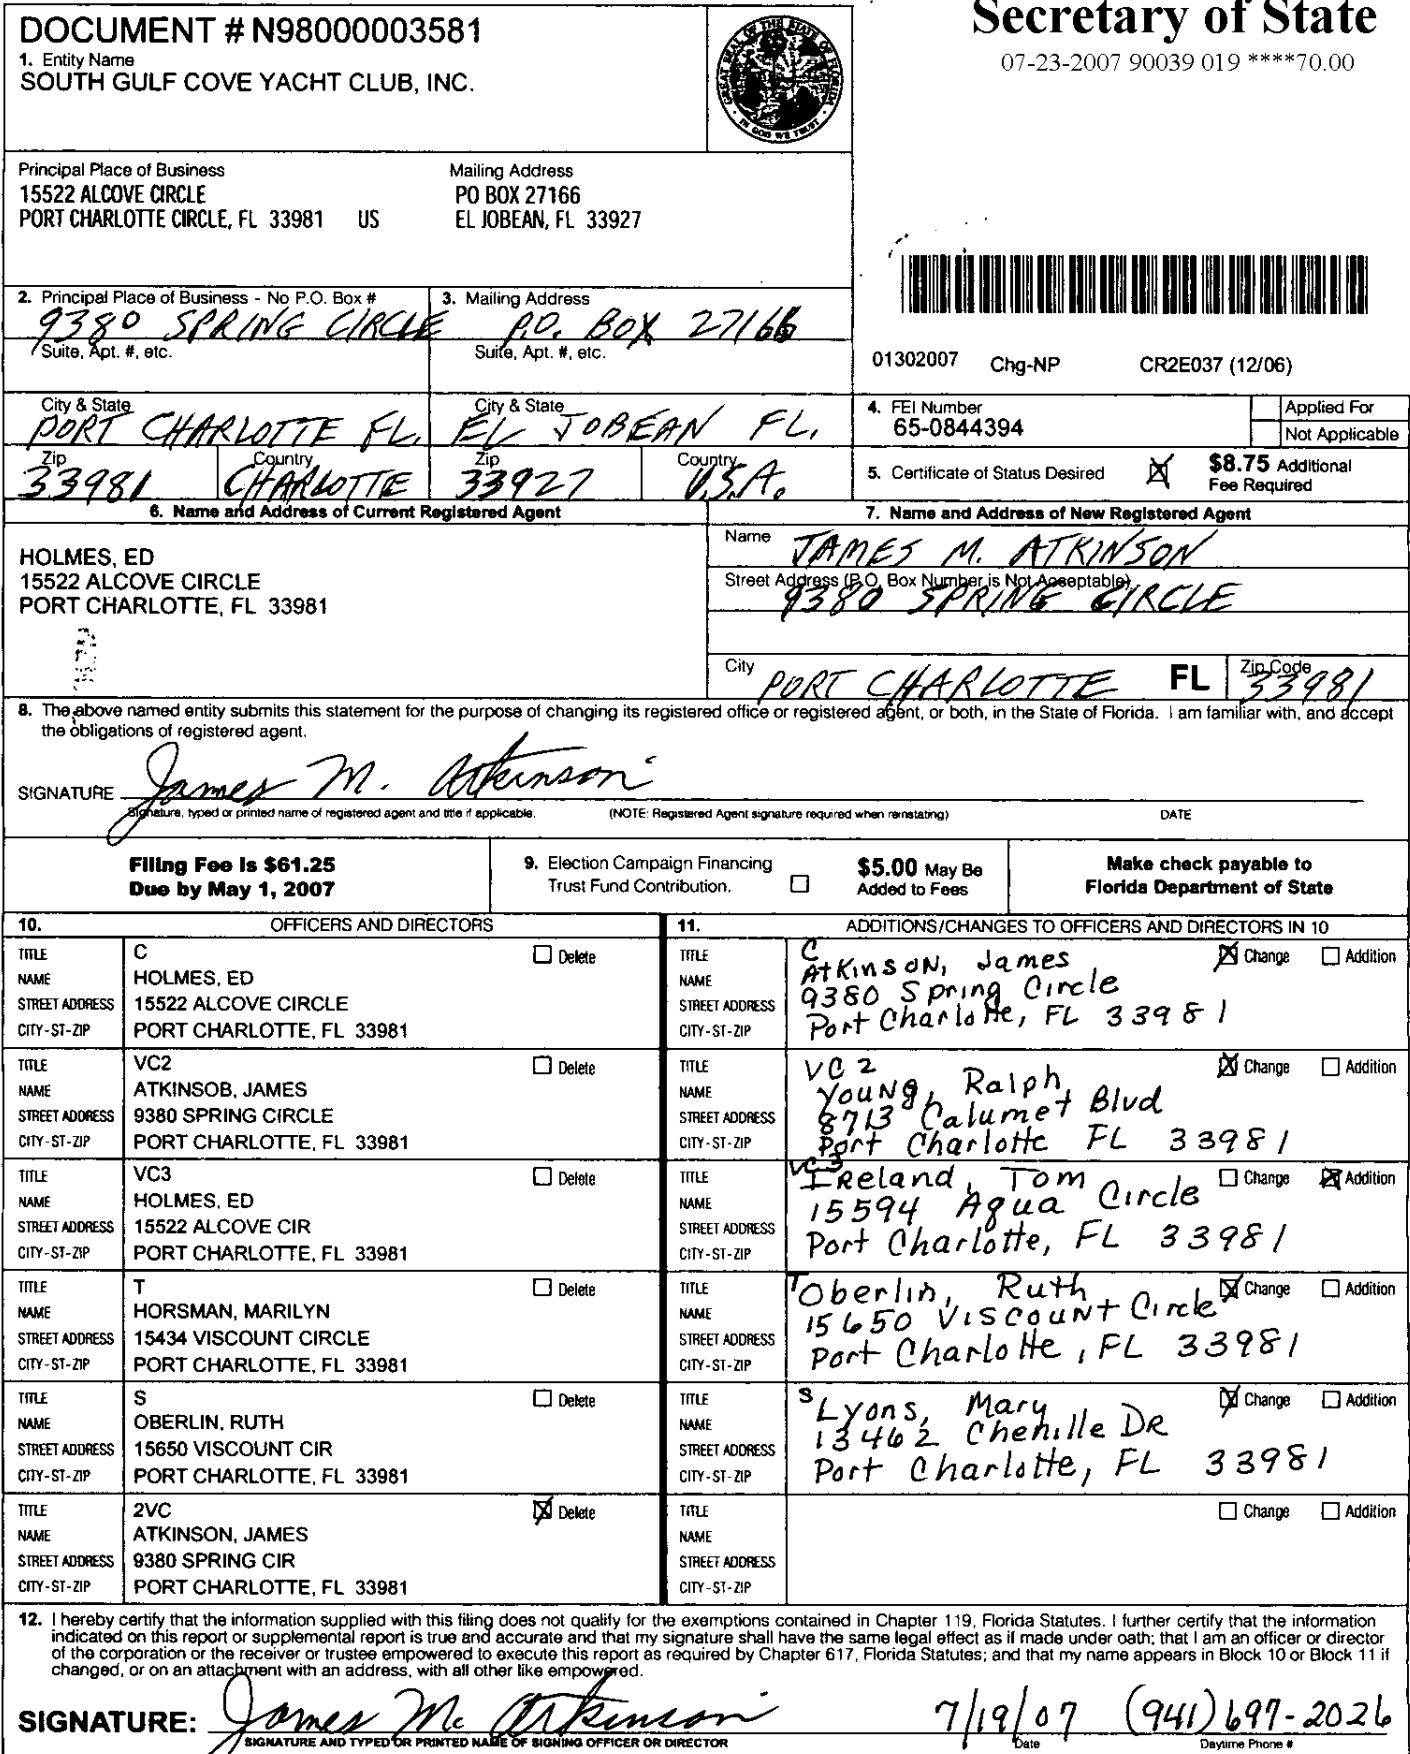 DOCUMENT # N98000003581
1. Entity Name
SOUTH GULF COVE YACHT CLUB, INC.
GREAT SEAL OF THE STATE OF FLORIDA
IN GOD WE TRUST
Secretary of State
07-23-2007 90039 019 ****70.00
Principal Place of Business
15522 ALCOVE CIRCLE
PORT CHARLOTTE CIRCLE, FL 33981 US
Mailing Address
PO BOX 27166
EL JOBEAN, FL 33927
2. Principal Place of Business - No P.O. Box #
9380 SPRING CIRCLE
Suite, Apt. #, etc.
3. Mailing Address
P.O. BOX 27166
Suite, Apt. #, etc.
01302007 Chg-NP CR2E037 (12/06)
City & State
PORT CHARLOTTE FL.
City & State
EL JOBEAN FL.
4. FEI Number
65-0844394
Applied For
Not Applicable
Zip
33981
Country
CHARLOTTE
Zip
33927
Country
U.S.A.
5. Certificate of Status Desired
$8.75 Additional
Fee Required
6. Name and Address of Current Registered Agent
HOLMES, ED
15522 ALCOVE CIRCLE
PORT CHARLOTTE, FL 33981
7. Name and Address of New Registered Agent
Name
JAMES M. ATKINSON
Street Address (P.O. Box Number is Not Acceptable)
9380 SPRING CIRCLE
City
PORT CHARLOTTE
FL
Zip Code
33981
8. The above named entity submits this statement for the purpose of changing its registered office or registered agent, or both, in the State of Florida. I am familiar with, and accept
the obligations of registered agent.
SIGNATURE James M. Atkinson
Signature, typed or printed name of registered agent and title if applicable. (NOTE: Registered Agent signature required when reinstating) DATE
Filing Fee is $61.25
Due by May 1, 2007
9. Election Campaign Financing
Trust Fund Contribution.
$5.00 May Be
Added to Fees
Make check payable to
Florida Department of State
10. OFFICERS AND DIRECTORS
TITLE C Delete
NAME HOLMES, ED
STREET ADDRESS 15522 ALCOVE CIRCLE
CITY-ST-ZIP PORT CHARLOTTE, FL 33981
TITLE VC2 Delete
NAME ATKINSOB, JAMES
STREET ADDRESS 9380 SPRING CIRCLE
CITY-ST-ZIP PORT CHARLOTTE, FL 33981
TITLE VC3 Delete
NAME HOLMES, ED
STREET ADDRESS 15522 ALCOVE CIR
CITY-ST-ZIP PORT CHARLOTTE, FL 33981
TITLE T Delete
NAME HORSMAN, MARILYN
STREET ADDRESS 15434 VISCOUNT CIRCLE
CITY-ST-ZIP PORT CHARLOTTE, FL 33981
TITLE S Delete
NAME OBERLIN, RUTH
STREET ADDRESS 15650 VISCOUNT CIR
CITY-ST-ZIP PORT CHARLOTTE, FL 33981
TITLE 2VC Delete
NAME ATKINSON, JAMES
STREET ADDRESS 9380 SPRING CIR
CITY-ST-ZIP PORT CHARLOTTE, FL 33981
11. ADDITIONS/CHANGES TO OFFICERS AND DIRECTORS IN 10
TITLE C Change Addition
NAME Atkinson, James
STREET ADDRESS 9380 Spring Circle
CITY-ST-ZIP Port Charlotte, FL 33981
TITLE VC 2 Change Addition
NAME Young, Ralph
STREET ADDRESS 8713 Calumet Blvd
CITY-ST-ZIP Port Charlotte FL 33981
TITLE VC 3 Change Addition
NAME Ireland, Tom
STREET ADDRESS 15594 Aqua Circle
CITY-ST-ZIP Port Charlotte, FL 33981
TITLE T Change Addition
NAME Oberlin, Ruth
STREET ADDRESS 15650 Viscount Circle
CITY-ST-ZIP Port Charlotte, FL 33981
TITLE S Change Addition
NAME Lyons, Mary
STREET ADDRESS 13462 Chenille DR
CITY-ST-ZIP Port Charlotte, FL 33981
TITLE Change Addition
NAME
STREET ADDRESS
CITY-ST-ZIP
12. I hereby certify that the information supplied with this filing does not qualify for the exemptions contained in Chapter 119, Florida Statutes. I further certify that the information
indicated on this report or supplemental report is true and accurate and that my signature shall have the same legal effect as if made under oath; that I am an officer or director
of the corporation or the receiver or trustee empowered to execute this report as required by Chapter 617, Florida Statutes; and that my name appears in Block 10 or Block 11 if
changed, or on an attachment with an address, with all other like empowered.
SIGNATURE: James M. Atkinson 7/19/07 (941) 697-2026
SIGNATURE AND TYPED OR PRINTED NAME OF SIGNING OFFICER OR DIRECTOR Date Daytime Phone #